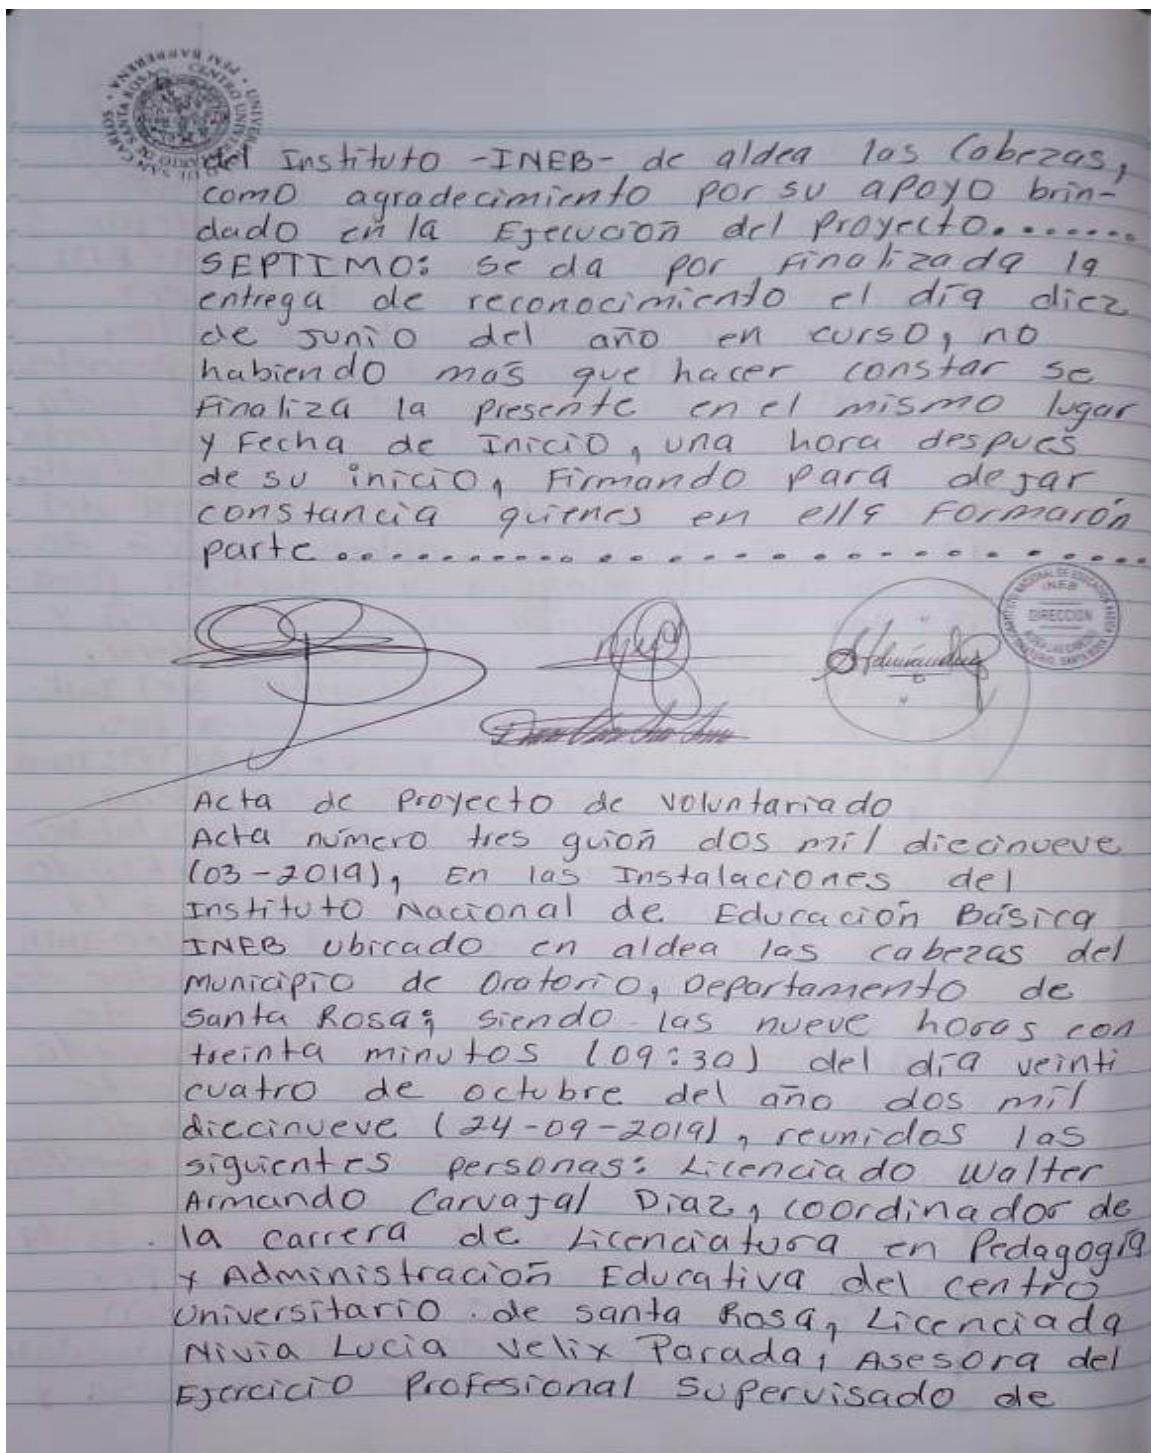 del Instituto -INEB- de aldea las Cabezas,
como agradecimiento por su apoyo brin-
dado en la Ejecución del Proyecto.......
SEPTIMO: se da por finalizada la
entrega de reconocimiento el día diez
de Junio del año en curso, no
habiendo mas que hacer constar se
Finaliza la presente en el mismo lugar
y Fecha de Inicio, una hora despues
de su inicio, Firmando para dejar
constancia quienes en ella Formarón
parte.......................
INEB
DIRECCION
Acta de Proyecto de voluntariado
Acta número tres guión dos mil diecinueve
(03-2019), En las Instalaciones del
Instituto Nacional de Educación Básica
INEB ubicado en aldea las cabezas del
Municipio de Oratorio, Departamento de
Santa Rosa; siendo las nueve horas con
treinta minutos (09:30) del día veinti
cuatro de octubre del año dos mil
diecinueve (24-09-2019), reunidos las
siguientes personas: Licenciado Walter
Armando Carvajal Diaz, coordinador de
la carrera de Licenciatura en Pedagogía
y Administración Educativa del centro
Universitario de santa Rosa, Licenciada
Nivia Lucia Velix Parada, Asesora del
Ejercicio Profesional Supervisado de